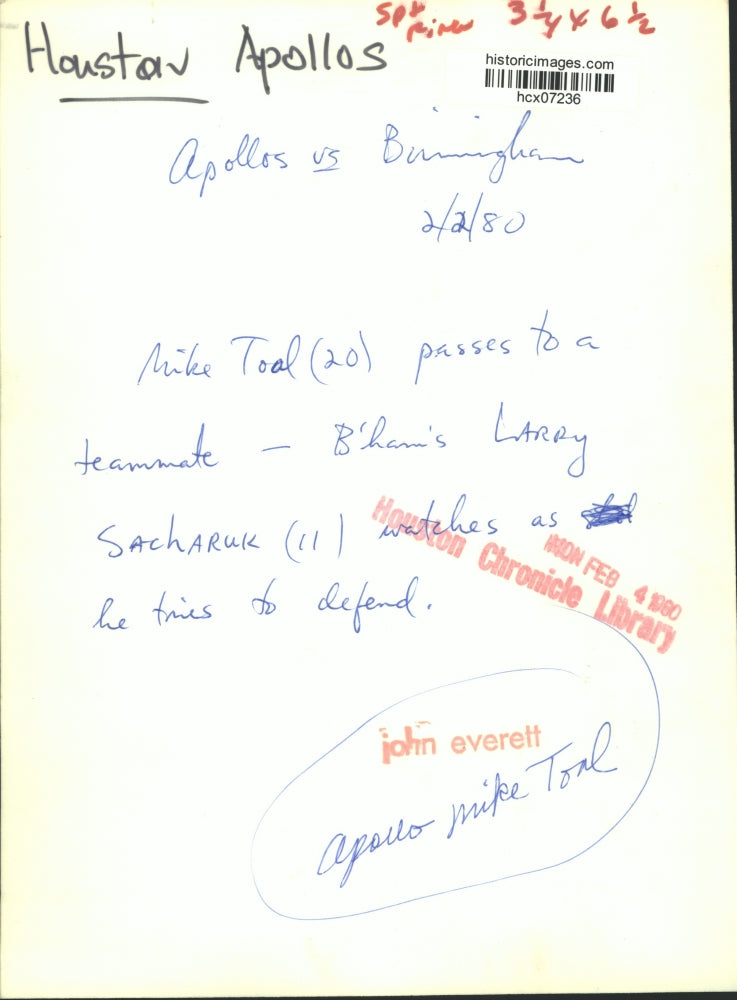 Houston Apollos
3 1/4 x 6 1/2
historicimages.com
hcx07236
Apollos vs Birmingham
2/2/80
Mike Toal (20) passes to a
teammate — B'ham's LARRY
SACHARUK (11) watches as
he tries to defend.
Houston Chronicle Library
MON FEB 4 1980
john everett
Apollo Mike Toal